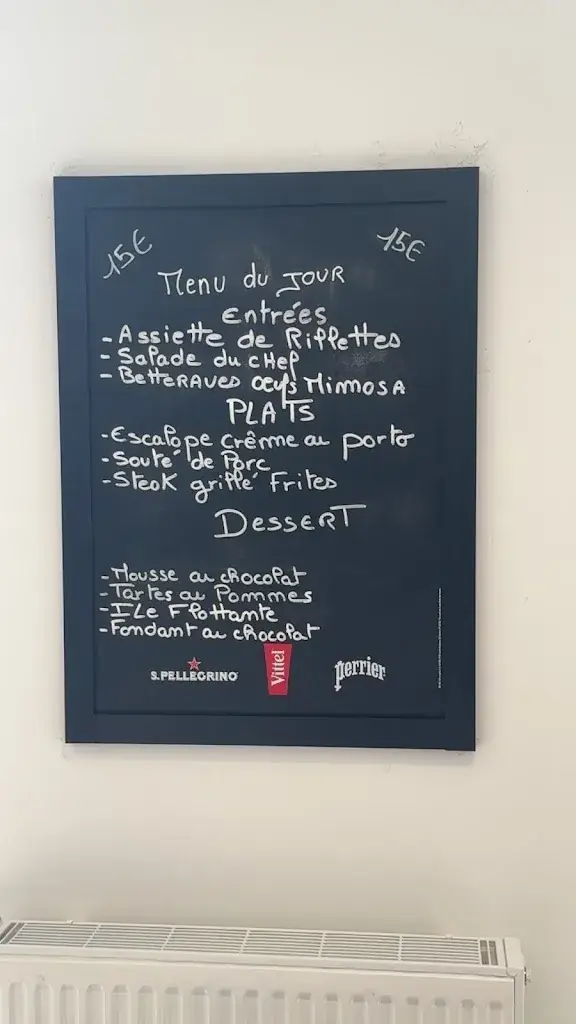 15€ 15€
Menu du JOUR
Entrées
- Assiette de Rillettes
- Salade du CHEF
- BetteRAVES œufs MimmosA
PLATS
- Escalope crême au porto
- Souté de Porc
- Steak grillé Frites
DESSERT
- Mousse au chocolat
- Tartes au Pommes
- ILe Flottante
- Fondant au chocolat
S.PELLEGRINO Vittel perrier